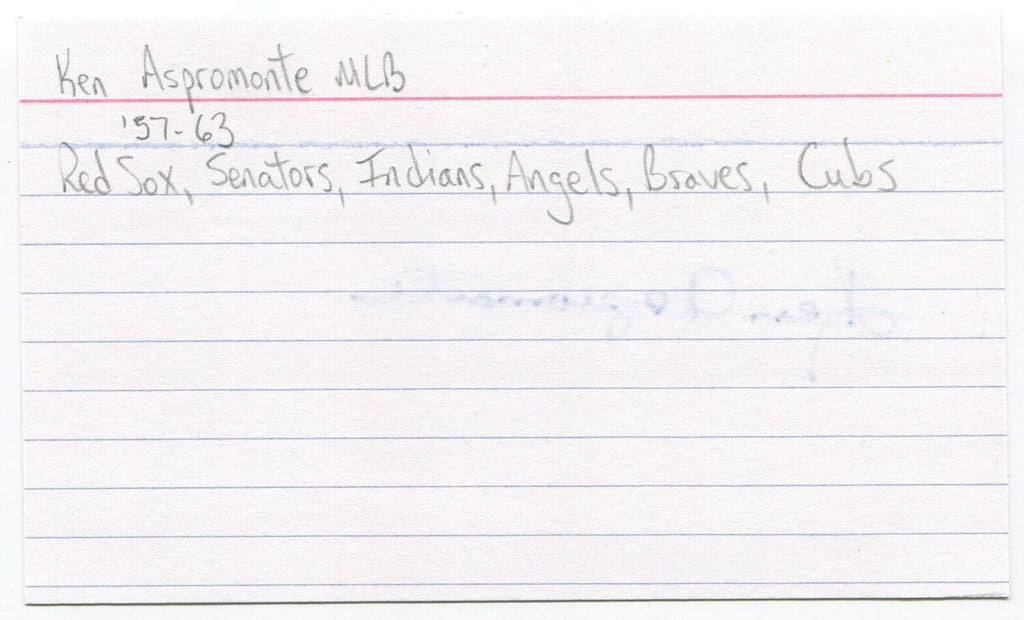 Ken Aspromonte MLB
'57-63
Red Sox, Senators, Indians, Angels, Braves, Cubs